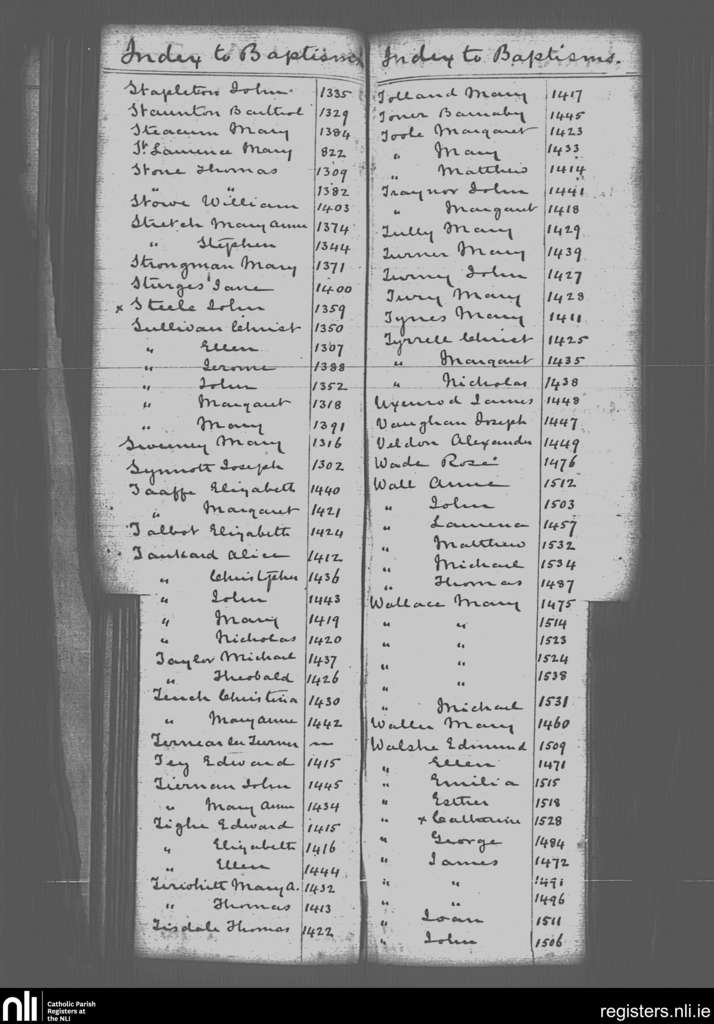 Index to Baptisms
Stapleton John 1335
Staunton Barthol 1329
Steacum Mary 1384
St. Laurence Mary 822
Stone Thomas 1309
" " 1382
Stowe William 1403
Stretch Mary Anne 1374
" Stephen 1344
Strongman Mary 1371
Sturges Jane 1400
x Steele John 1359
Sullivan Christ 1350
" Ellen 1307
" Jerome 1388
" John 1352
" Margaret 1318
" Mary 1391
Sweeney Mary 1316
Synnott Joseph 1302
Taaffe Elizabeth 1440
" Margaret 1421
Talbot Elizabeth 1424
Tankard Alice 1412
" Christopher 1436
" John 1443
" Mary 1419
" Nicholas 1420
Taylor Michael 1437
" Theobald 1426
Tench Christina 1430
" Mary Anne 1442
Turner —
Tey Edward 1415
Tiernan John 1445
" Mary Anne 1434
Tighe Edward 1415
" Elizabeth 1416
" Ellen 1444
Mary A. 1432
" Thomas 1413
Tisdale Thomas 1422
Index to Baptisms.
Tolland Mary 1417
Toner Barnaby 1445
Toole Margaret 1423
" Mary 1433
" Matthew 1414
Traynor John 1441
" Margaret 1418
Tully Mary 1429
Turner Mary 1439
John 1427
Tury Mary 1428
Tynes Mary 1411
Tyrrell Christ 1425
" Margaret 1435
" Nicholas 1438
Uxenrod James 1448
Vaughan Joseph 1447
Veldon Alexander 1449
Wade Rose 1476
Wall Anne 1512
" John 1503
" Laurence 1457
" Matthew 1532
" Michael 1534
" Thomas 1487
Wallace Mary 1475
" " 1514
" " 1523
" " 1524
" " 1538
" Michael 1531
Waller Mary 1460
Walshe Edmund 1509
" Ellen 1471
" Emilia 1515
" Esther 1518
" x Catherine 1528
" George 1484
" James 1472
" " 1491
" " 1496
" Joan 1511
" John 1506
nli
Catholic Parish
Registers at
the NLI
registers.nli.ie